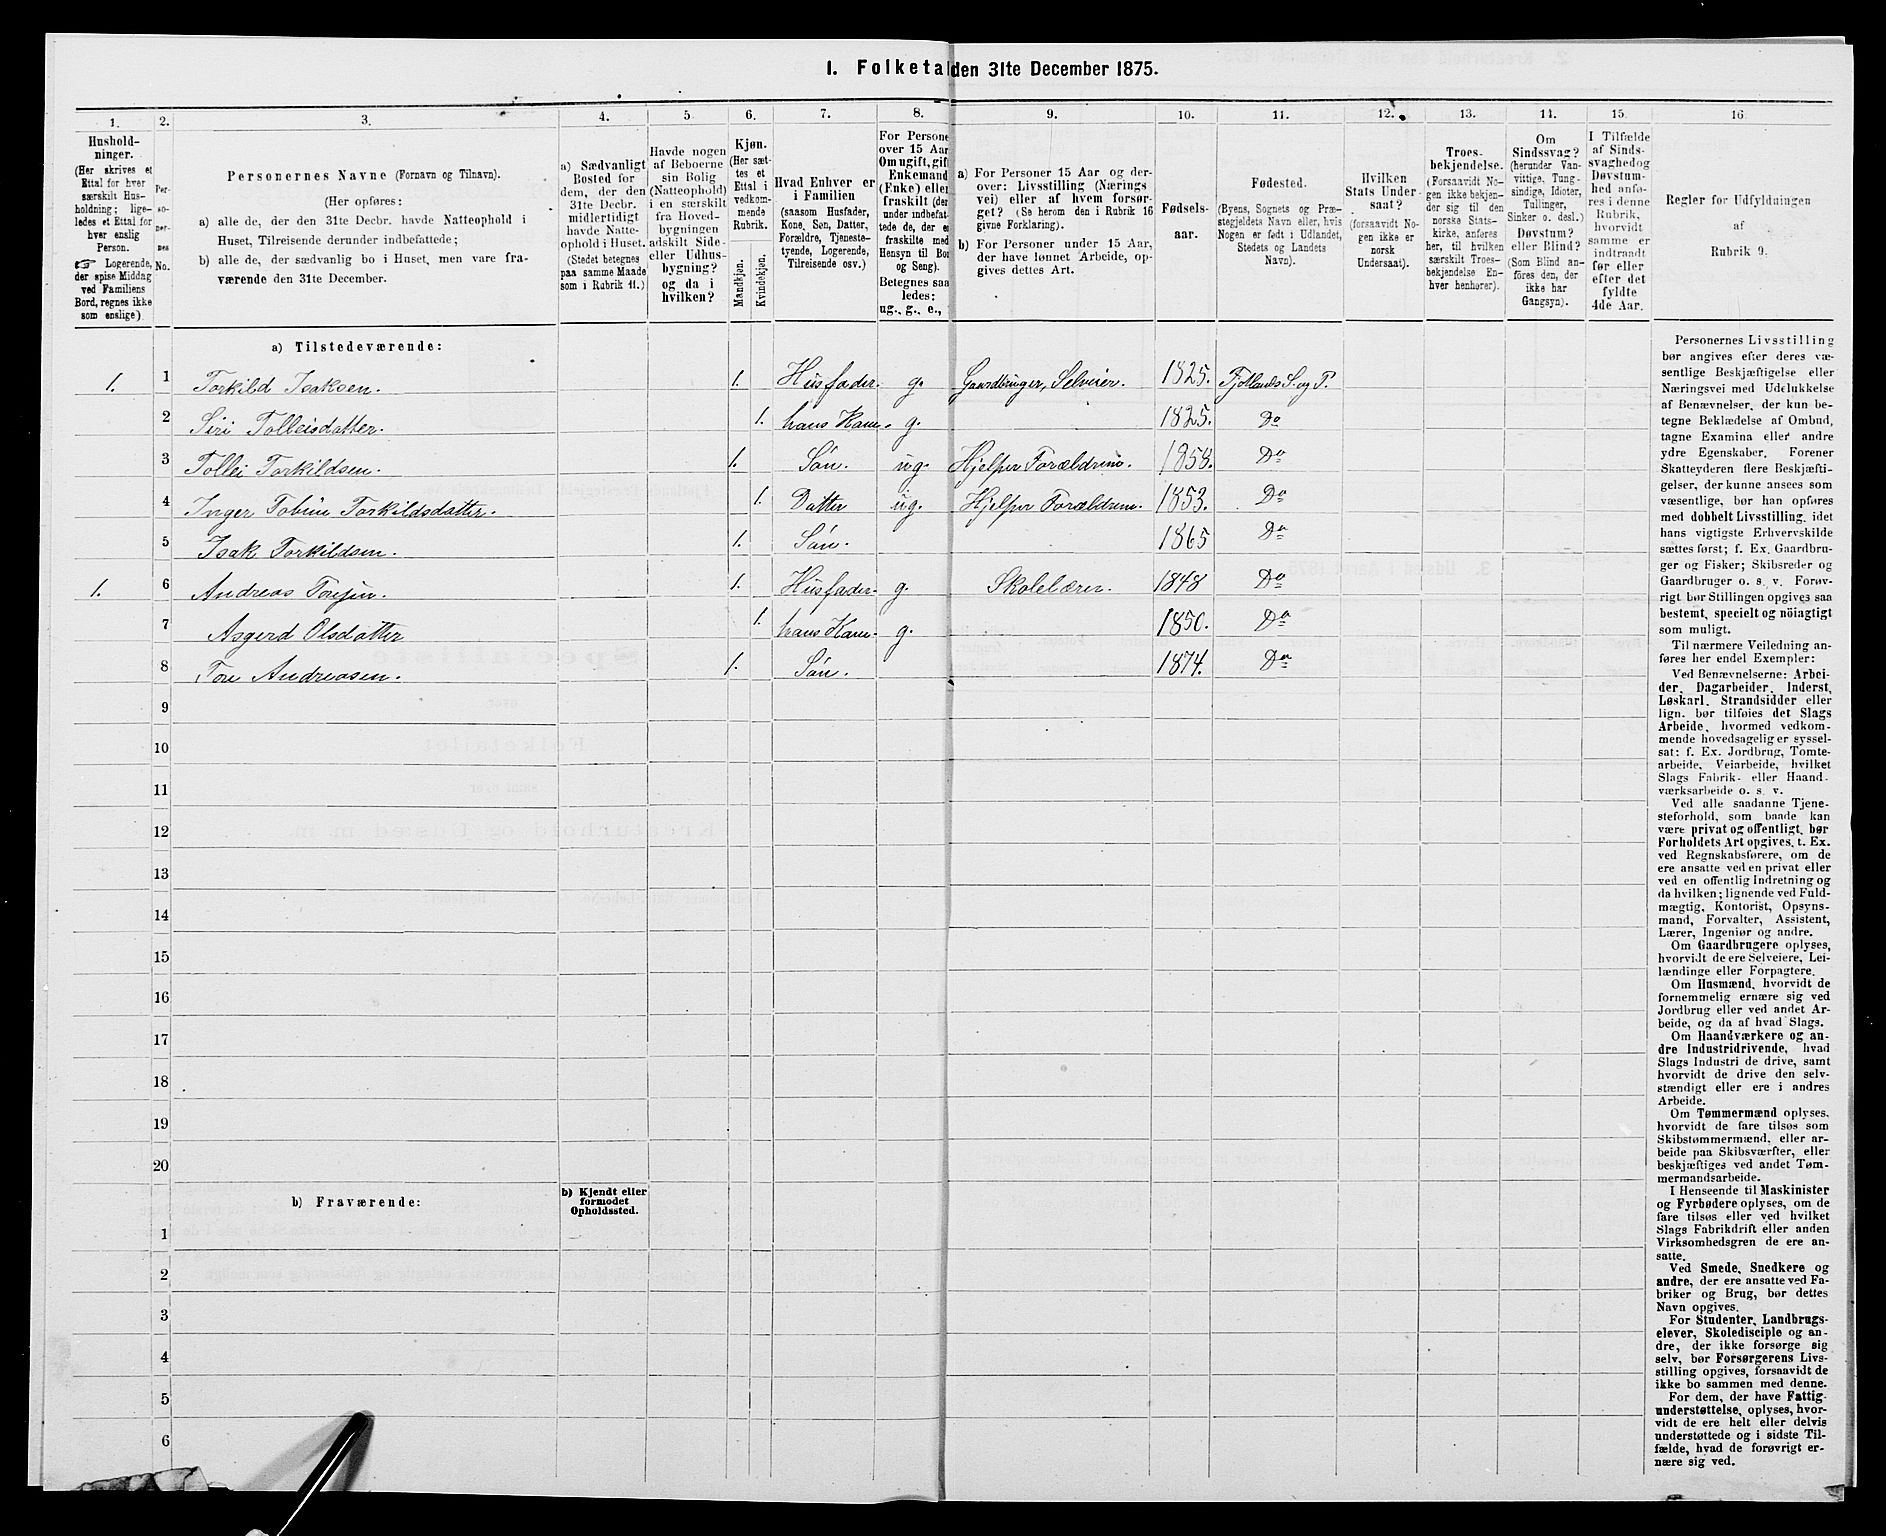 I. Folketal den 31te December 1875.
1. 2. 3. 4. 5. 6. 7. 8. 9. 10. 11. 12. 13. 14. 15. 16.
Hushold-
ninger.
(Her skrives et
Ettal for hver
særskilt Hus-
holdning; lige-
ledes et Ettal for
hver enslig
Person.
☞ Logerende,
der spise Middag
ved Familiens
Bord, regnes ikke
som enslige)
Per-
so-
ner-
nes
No.
Personernes Navne (Fornavn og Tilnavn).
(Her opføres:
a) alle de, der den 31te Decbr. havde Natteophold i
Huset, Tilreisende derunder indbefattede;
b) alle de, der sædvanlig bo i Huset, men vare fra-
værende den 31te December.
a) Sædvanligt
Bosted for
dem, der den
31te Decbr.
midlertidigt
havde Natte-
ophold i Huset.
(Stedet betegnes
paa samme Maade
som i Rubrik 11.)
Havde nogen
af Beboerne
sin Bolig
(Natteophold)
i en særskilt
fra Hoved-
bygningen
adskilt Side-
eller Udhus-
bygning?
og da i
hvilken?
Kjøn.
(Her sæt-
tes et
Ettal i
vedkom-
mende
Rubrik.
Mandkjøn.
Kvindekjøn.
Hvad Enhver er
i Familien
(saasom Husfader,
Kone, Søn, Datter,
Forældre, Tjeneste-
tyende, Logerende,
Tilreisende osv.)
For Persone
over 15 Aar
Om ugift, gift
Enkemand
(Enke) eller
fraskilt (der
under indbefat-
tede de, der e
fraskilte med
Hensyn til Bo
og Seng).
Betegnes saa
ledes:
ug., g., e.,
a) For Personer 15 Aar og der-
over: Livsstilling (Nærings
vei) eller af hvem forsør-
get? (Se herom den i Rubrik 16
givne Forklaring).
b) For Personer under 15 Aar,
der have lønnet Arbeide, op-
gives dettes Art.
Fødsels-
aar.
Fødested.
(Byens, Sognets og Præ-
stegjeldets Navn eller, hvis
Nogen er født i Udlandet,
Stedets og Landets
Navn).
Hvilken
Stats Under-
saat?
(forsaavidt No-
gen ikke er
norsk
Undersaat).
Troes-
bekjendelse.
(Forsaavidt No-
gen ikke bekjen-
der sig til den
norske Stats-
kirke, anføres
her, til hvilken
særskilt Troes-
bekjendelse En-
hver henhører).
Om
Sindssvag?
(herunder Van-
vittige, Tung-
sindige, Idioter,
Tullinger,
Sinker o. desl.)
Døvstum?
eller Blind?
(Som Blind an-
føres den, der
ikke har
Gangsyn).
I Tilfælde
af Sinds-
svaghed og
Døvstum-
hed anfø-
res i denne
Rubrik,
hvorvidt
samme er
indtraadt
før eller
efter det
fyldte
4de Aar.
Regler for Udfyldningen
af
Rubrik 9.
a) Tilstedeværende:
1. 1 Torkild Isaksen. 1. Husfader. g. Gaardbruger, Selveier. 1825. Fjotlands S. og P.
2 Siri Tolleisdatter. 1. hans Kone. g. 1825. Do
3 Tollei Torkildsen. 1. Søn. ug. Hjelper Forældrene. 1858. Do
4 Inger Tobine Torkildsdatter. 1. Datter ug. Hjelper Forældrene. 1853. Do
5 Isak Torkildsen. 1. Søn. 1865 Do
1. 6 Andreas Toresen. 1. Husfader. g. Skolelærer. 1848 Do
7 Asgerd Olsdatter 1. hans Kone. g. 1850. Do
8 Tore Andreasen. 1. Søn. 1874. Do
9
10
11
12
13
14
15
16
17
18
19
20
b) Fraværende:
b) Kjendt eller
formodet
Opholdssted.
1
2
3
4
5
6
Personernes Livsstilling
bør angives efter deres væ-
sentlige Beskjæftigelse eller
Næringsvei med Udelukkelse
af Benævnelser, der kun be-
tegne Beklædelse af Ombud,
tagne Examina eller andre
ydre Egenskaber. Forener
Skatteyderen flere Beskjæfti-
gelser, der kunne ansees som
væsentlige, bør han opføres
med dobbelt Livsstilling, idet
hans vigtigste Erhvervskilde
sættes først; f. Ex. Gaardbru-
ger og Fisker; Skibsreder og
Gaardbruger o. s. v. Forøv-
rigt bør Stillingen opgives saa
bestemt, specielt og nöiagtigt
som muligt.
Til nærmere Veiledning an-
føres her endel Exempler:
Ved Benævnelserne: Arbei-
der, Dagarbeider, Inderst,
Løskarl, Strandsidder eller
lign. bør tilføies det Slags
Arbeide, hvormed vedkom-
mende hovedsagelig er syssel-
sat: f. Ex. Jordbrug, Tomte-
arbeide, Veiarbeide, hvilket
Slags Fabrik- eller Haand-
værksarbeide o. s. v.
Ved alle saadanne Tjene-
steforhold, som baade kan
være privat og offentligt, bør
Forholdets Art opgives, t. Ex.
ved Regnskabsførere, om de
ere ansatte ved en privat eller
ved en offentlig Indretning og
da hvilken; lignende ved Fuld-
mægtig, Kontorist, Opsyns-
mand, Forvalter, Assistent,
Lærer, Ingeniør og andre.
Om Gaardbrugere oplyses,
hvorvidt de ere Selveiere, Lei-
lændinge eller Forpagtere.
Om Husmænd, hvorvidt de
fornemmelig ernære sig ved
Jordbrug eller ved andet Ar-
beide, og da af hvad Slags.
Om Haandværkere og an-
dre Industridrivende, hvad
Slags Industri de drive, samt
hvorvidt de drive den selv-
stændigt eller ere i andres
Arbeide.
Om Tømmermænd oplyses,
hvorvidt de fare tilsøs som
Skibstømmermænd, eller ar-
beide paa Skibsværfter, eller
beskjæftiges ved andet Tøm-
mermandsarbeide.
I Henseende til Maskinister
og Fyrbødere oplyses, om de
fare tilsøs eller ved hvilket
Slags Fabrikdrift eller anden
Virksomhedsgren de ere an-
satte.
Ved Smede, Snedkere og
andre, der ere ansatte ved Fa-
briker og Brug, bør dettes
Navn opgives.
For Studenter, Landbrugs-
elever, Skoledisciple og an-
dre, der ikke forsørge sig
selv, bør Forsørgerens Livs-
stilling opgives, forsaavidt de
ikke bo sammen med denne.
For dem, der have Fattig-
understøttelse, oplyses, hvor-
vidt de ere helt eller delvis
understøttede og i sidste Til-
fælde, hvad de forøvrigt er-
nære sig ved.